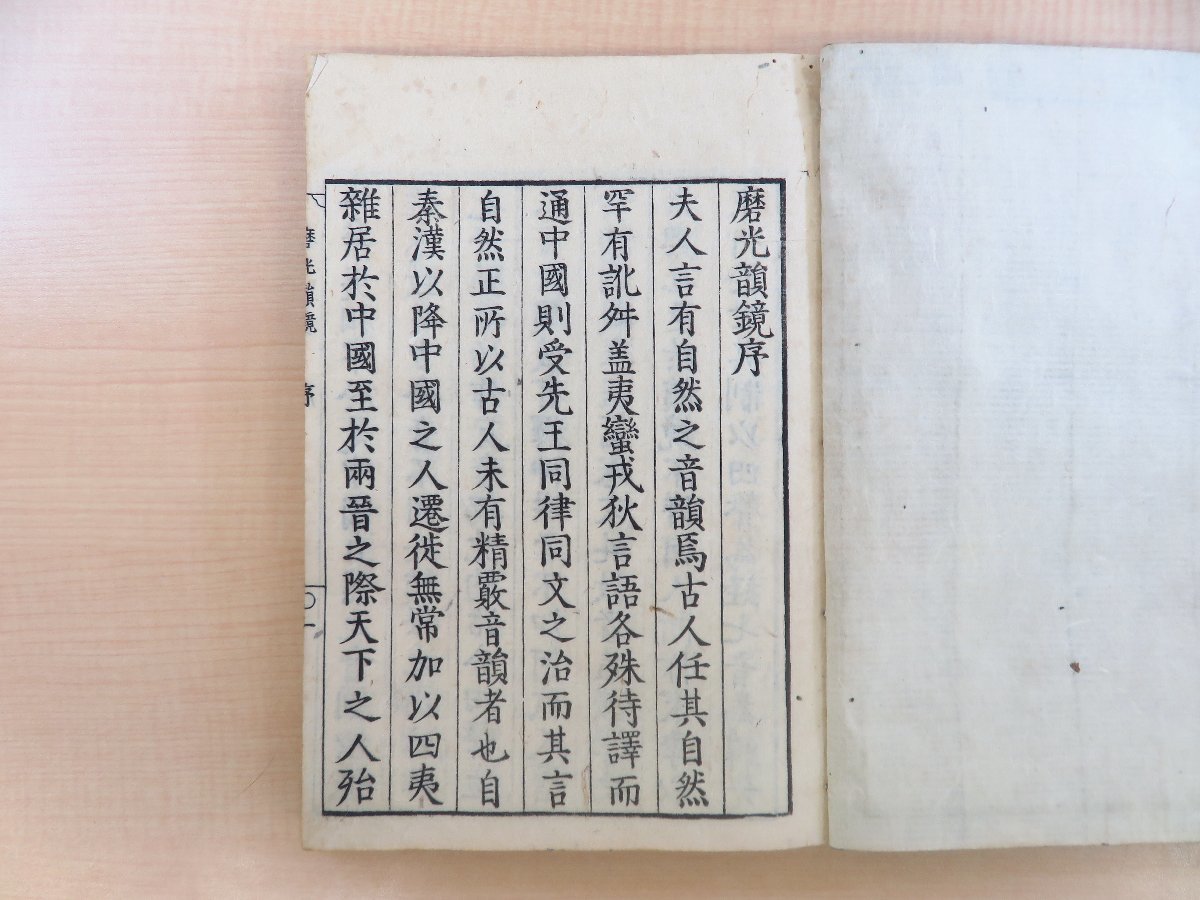 磨光韻鏡序
夫人言有自然之音韻焉古人任其自然
罕有訛舛盖夷蠻戎狄言語各殊待譯而
通中國則受先王同律同文之治而其言
自然正所以古人未有精覈音韻者也自
秦漢以降中國之人遷徙無常加以四夷
雜居於中國至於兩晉之際天下之人殆
磨光韻鏡 序 一